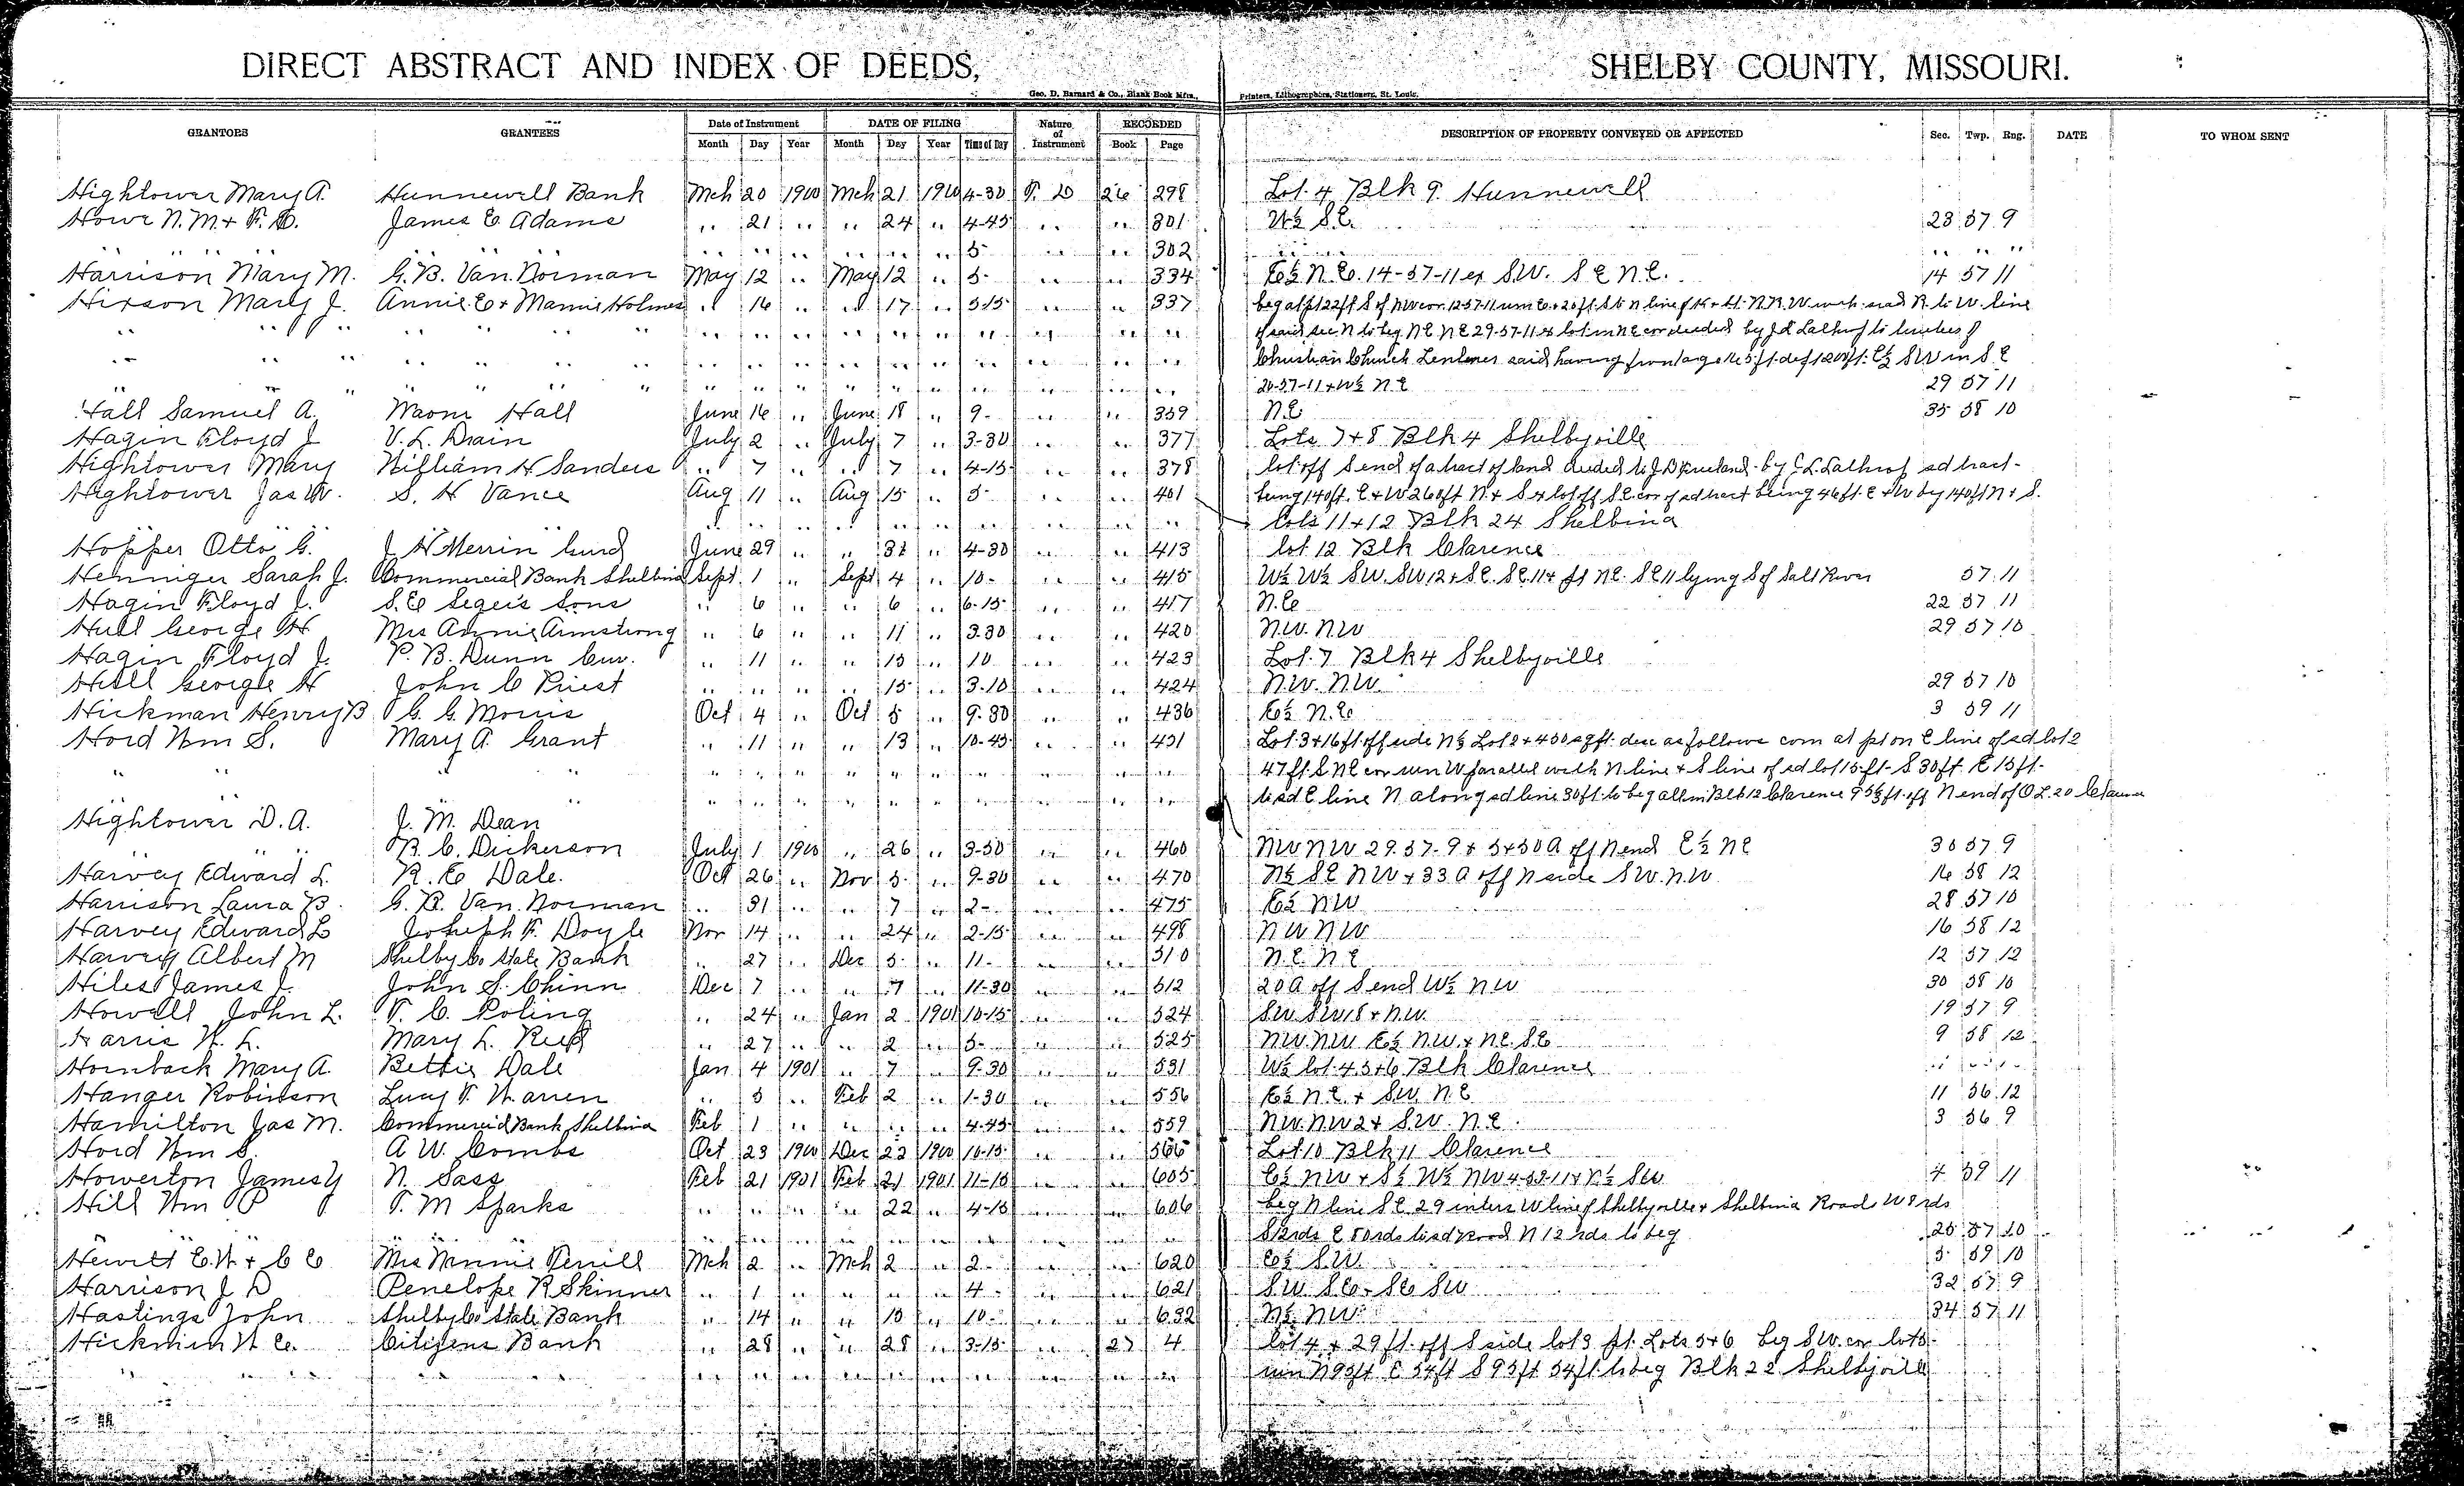 DIRECT ABSTRACT AND INDEX OF DEEDS, SHELBY COUNTY, MISSOURI.
Geo. D. Barnard & Co., Blank Book Mfrs., Printers, Lithographers, Stationers, St. Louis.
GRANTORS GRANTEES Date of Instrument DATE OF FILING Nature of Instrument RECORDED DESCRIPTION OF PROPERTY CONVEYED OR AFFECTED Sec. Twp. Rng. DATE TO WHOM SENT
Month Day Year Month Day Year Time of Day Book Page
Hightower Mary A. Hunnewell Bank Mch 20 1900 Mch 21 1900 4-30 T. D 26 298 Lot 4 Blk 9 Hunnewell
Howe N. M. + F. D. James E Adams " 21 " " 24 " 4-45 " " 301 W½ S.E. 23 57 9
" " " " " " " " " 5- " " 302 " " " "
Harrison Mary M. G. B. Van Norman May 12 " May 12 " 5- " " 334 E½ N.E. 14-57-11 ex SW. S E N E. 14 57 11
Hixson Mary J. Annie E + Mamie Holmes " 16 " " 17 " 5 15 " " 337 beg at pt 122 ft S of NW cor. 12-57-11 run E. 20 ft. S to N line of H + St. J R. R. W with said R. to W. line
" " " " " " " " " " " " " " " of said sec N to beg NE NE 29-57-11 ex lot in NE cor deeded by J L Lathrop to trustees of
" " " " " " " " " " " " " " " Christian Church Lentner said having frontage 165 ft. def 120 ft. E½ SW in S E
" " " " " " " " " " " " " " " 20-57-11 + W½ N E 29 57 11
Hall Samuel A. Naomi Hall June 16 " June 18 " 9- " " 359 N E 35 58 10
Hagin Floyd J V. L. Drain July 2 " July 7 " 3-30 " " 377 Lots 7 + 8 Blk 4 Shelbyville
Hightower Mary William H Sanders " 7 " " 7 " 4-15 " " 378 lot off S end of a tract of land deeded to J D by J. L. Lathrop sd tract
Hightower Jas W. S. H Vance Aug 11 " Aug 15 " 5- " " 401 being 140 ft. E + W 260 ft N + S ex lot off S E. cor of sd tract being 46 ft. E + W by 140 ft N + S.
" " " " " " " " " lots 11 + 12 Blk 24 Shelbina
Hopper Otto G. J H Merrin June 29 " " 31 " 4-30 " " 413 lot 12 Blk Clarence
Henniger Sarah J. Commercial Bank Shelbina Sept 1 " Sept 4 " 10- " " 415 W½ W½ SW. SW 12 + S.E. S.E. 11 + pt N E. S E 11 lying S of Salt River 57 11
Hagin Floyd J. S. E Seger's Sons " 6 " " 6 " 6-15 " " 417 N. E 22 57 11
Hull George H Mrs Annie Armstrong " 6 " " 11 " 3.30 " " 420 N.W. N.W 29 57 10
Hagin Floyd J. P. B. Dunn Cur. " 11 " " 13 " 10 " " 423 Lot 7 Blk 4 Shelbyville
Hull George H John C Priest " " " " 15 " 3-10 " " 424 N.W. N.W. 29 57 10
Hickman Henry B G. G. Morris Oct 4 " Oct 5 " 9-30 " " 436 E½ N. E 3 59 11
Hord Wm S. Mary A. Grant " 11 " " 13 " 10-45 " " 431 Lot 3 + 16 ft off side N½ Lot 2 + 450 sq ft. desc as follows com at pt on E line of sd lot 2
" " " " " " " " " " " " 47 ft S N E cor run W parallel with N line + S line of sd lot 15 ft- S 30 ft. E 15 ft.
" " " " " " " " " " " " to sd E line N along sd line 30 ft to beg all in Blk 12 Clarence 9 5⅔ ft off N end of O L 20 Clarence
Hightower D. A. J. M. Dean
" " R. C. Dickerson July 1 1900 " 26 " 3-30 " " 460 NW NW 29-57-9 + 5+50 A off N end E½ NE 30 57 9
Harvey Edward L. R. E Dale. Oct 26 " Nov 5 " 9-30 " " 470 N½ S E NW + 33 A off N side S W. N. W 16 58 12
Harrison Laura B. G. B. Van Norman " 31 " " 7 " 2- " " 475 E½ NW 28 57 10
Harvey Edward L Joseph F. Doyle Nov 14 " " 24 " 2-15 " " 498 NW NW 16 58 12
Harvey Albert M Shelby Co State Bank " 27 " Dec 5 " 11- " " 510 N. E. N. E 12 57 12
Hiles James J. John S. Chinn Dec 7 " " 7 " 11-30 " " 512 20 A off S end W½ NW 30 58 10
Howell John L. T. C. Poling " 24 " Jan 2 1901 10-15 " " 524 SW SW 18 + N.W. 19 57 9
Harris W. L. Mary L. " 27 " " 2 " 5- " " 525 NW NW E½ NW + NE. SE 9 58 12
Hornback Mary A. Bettie Dale Jan 4 1901 " 7 " 9-30 " " 531 W½ lot 4 5+6 Blk Clarence " " "
Hanger Robinson Lucy F. Warren " 5 " Feb 2 " 1-30 " " 556 E½ N. E. + SW. N. E. 11 56 12
Hamilton Jas M. Commercial Bank Shelbina Feb 1 " " " " 4-45 " " 559 NW. NW 2 + S.W. N. E. 3 56 9
Hord Wm S. A W. Combs Oct 23 1900 Dec 22 1900 10-15 " " 566 Lot 10 Blk 11 Clarence
Howerton James Y N. Sass Feb 21 1901 Feb 21 1901 11-15 " " 605 E½ NW + S½ W½ NW 4-59-11 + N½ SW 4 59 11
Hill Wm P T. M Sparks " " " " 22 " 4-15 " " 606 beg N line S E 29 inters W line of Shelbyville + Shelbina Road W 8 rds
" " " " " " " " " " " " S rds E 8 rds to sd road N 12 rds to beg 29 57 10
Hewitt E. W + C E Mrs Minnie Perrill Mch 2 " Mch 2 " 2- " " 620 E½ S.W. 5 59 10
Harrison J D Penelope R Skinner " 1 " " " " 4- " " 621 S.W. S E - S E SW 32 57 9
Hastings John Shelby Co State Bank " 14 " " 15 " 10- " " 632 N½ NW 34 57 11
Hickman W E. Citizens Bank " 28 " " 28 " 3-15 " 27 4 lot 4 + 29 ft off S side lot 3 pt. Lots 5+6 beg S.W. cor lot 5
" " " " " " " " " " " " run N 93 ft E 54 ft S 93 ft 54 ft to beg Blk 22 Shelbyville